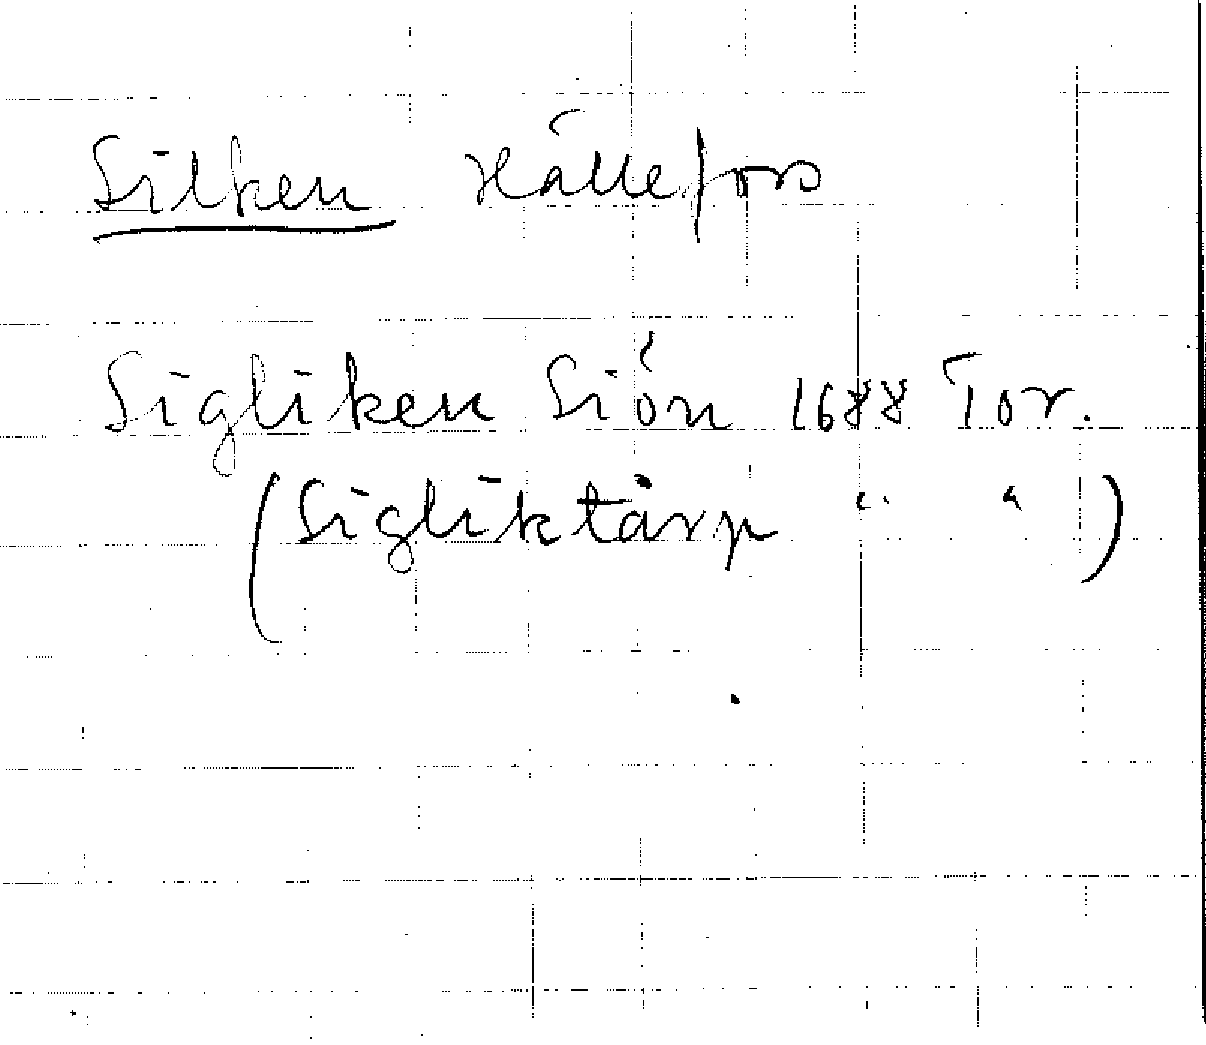 Silken Hällefors
Sigliken Siön 1688 Tor.
(Sigliktärp " ")